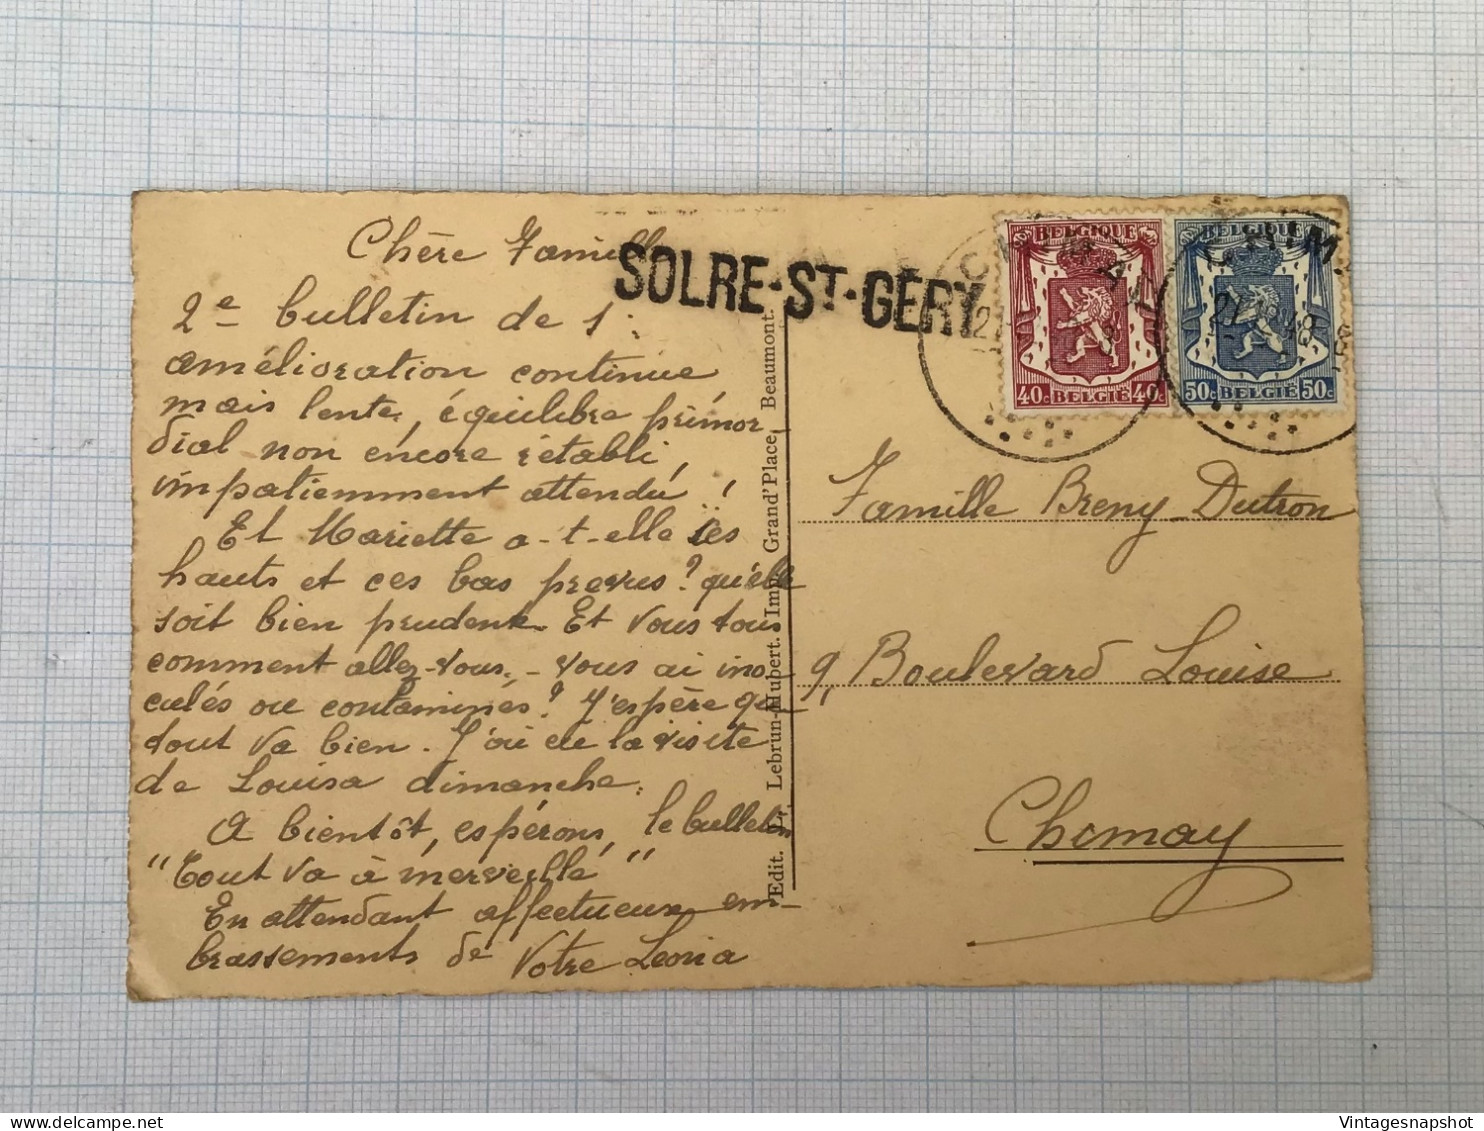 Chère Famille
SOLRE-ST-GERY
2e bulletin de 1:
amélioration continue
mais lente, équilibre primor
dial non encore rétabli,
impatiemment attendu !
Et Mariette a-t-elle ses
hauts et ces bas prévus ? qu'elle
soit bien prudente. Et vous tous
comment allez-vous. - vous ai ino
culés ou contaminés ? J'espère que
tout va bien. J'ai eu la visite
de Louisa dimanche.
A bientôt, espérons, le bulletin
"Tout va à merveille"
En attendant affectueux em-
brassements de votre Leona
Edit. Lebrun-Hubert. Imp. Grand'Place, Beaumont.
BELGIQUE
40c BELGIË 40c
BELGIQUE
50c BELGIË 50c
CHIMAY
CHIM
Famille Breny-Dutron
9, Boulevard Louise
Chimay
Vintagesnapshot